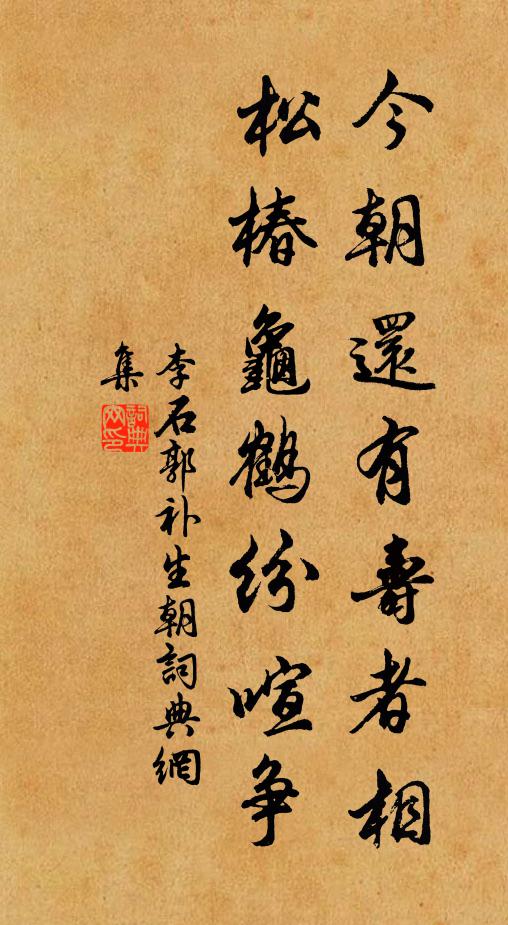 今朝還有壽者相
松椿龜鶴紛喧争
李石郭补生朝詞典網
集
詞典
网印